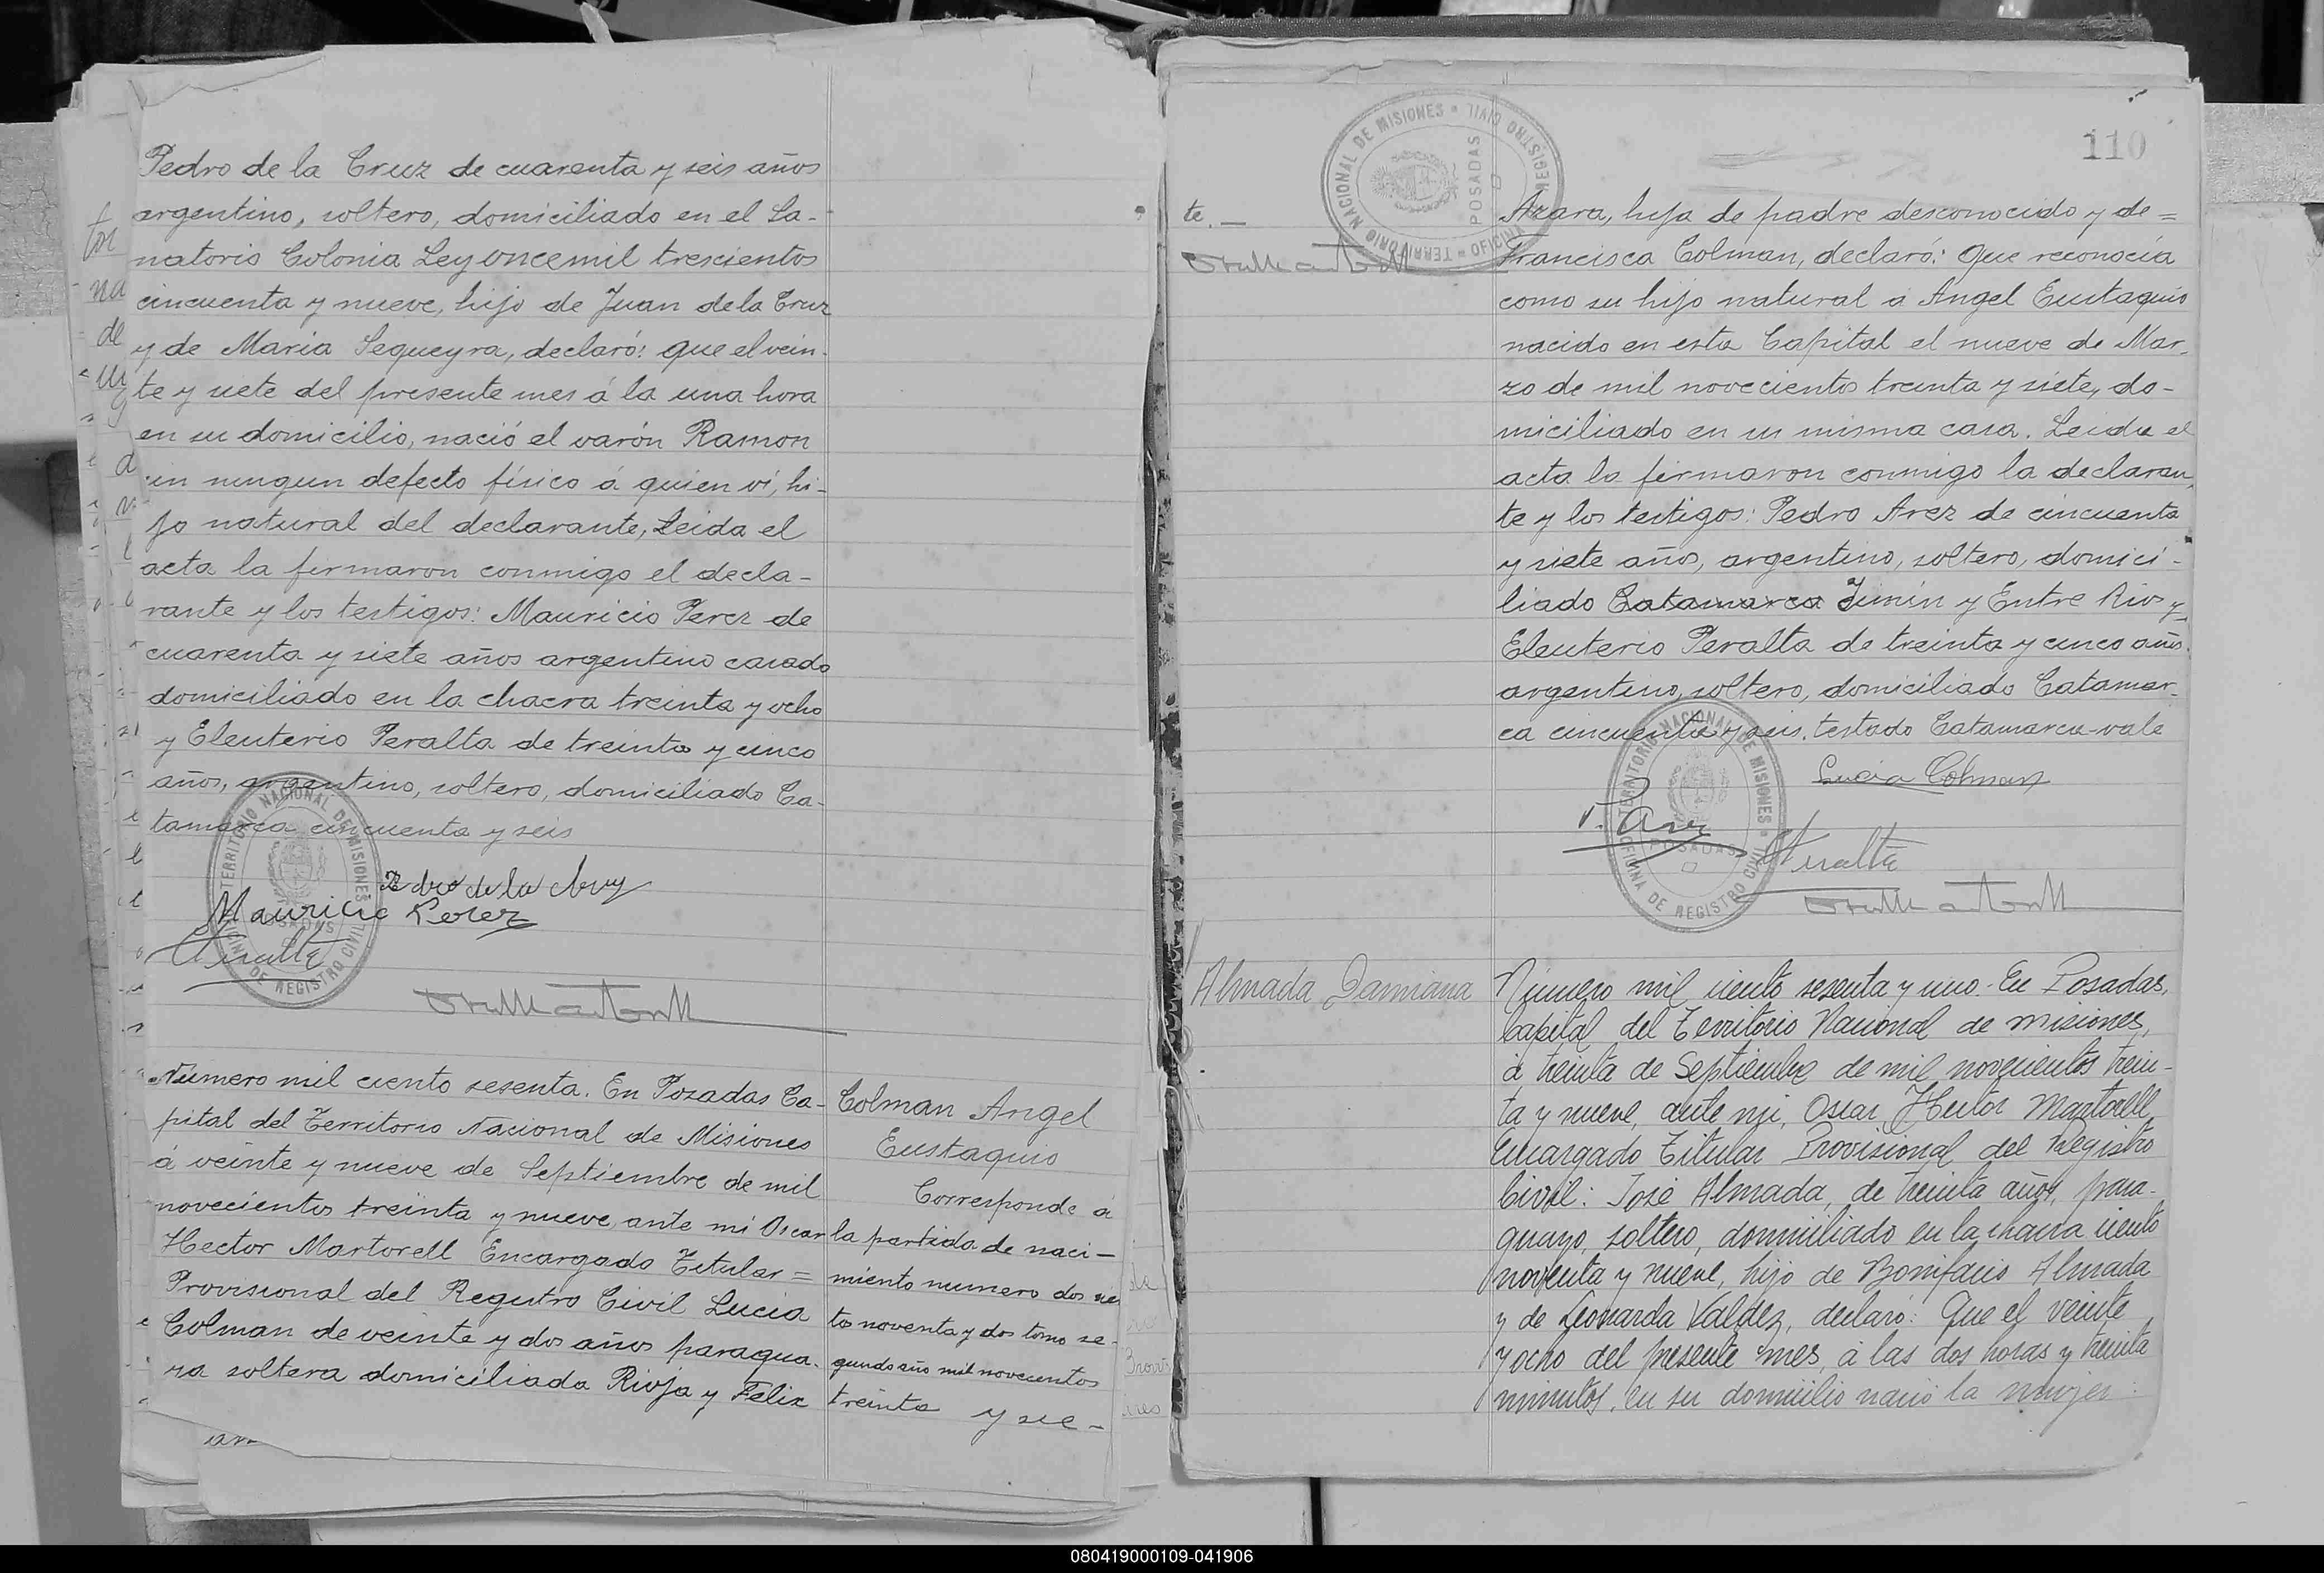 Pedro de la Cruz de cuarenta y seis años
argentino, soltero, domiciliado en el Sa-
natorio Colonia Ley oncemil trescientos
cincuenta y nueve, hijo de Juan de la Cruz
y de Maria Sequeyra, declaró: que el vein-
te y siete del presente mes á la una hora
en su domicilio, nació el varón Ramon
sin ningun defecto físico á quien ví, hi-
jo natural del declarante, Leida el
acta la firmaron conmigo el decla-
rante y los testigos: Mauricio Perez de
cuarenta y siete años argentino casado
domiciliado en la chacra treinta y ocho
y Eleuterio Peralta de treinta y cinco
años, argentino, soltero, domiciliado Ca-
tamarca cincuenta y seis
Pedro de la Cruz
Mauricio Perez
TERRITORIO NACIONAL DE MISIONES
OFICINA DE REGISTRO CIVIL
POSADAS
Número mil ciento sesenta. En Posadas Ca-
pital del Territorio Nacional de Misiones
á veinte y nueve de Septiembre de mil
novecientos treinta y nueve, ante mi Oscar
Hector Martorell Encargado Titular =
Provisional del Registro Civil Lucia
Colman de veinte y dos años paragua-
ya soltera domiciliada Rioja y Felix
Colman Angel
Eustaquio
Corresponde á
la partida de naci-
miento numero dos cie
tos noventa y dos tomo se-
gundo año mil novecientos
treinta y sie-
110
TERRITORIO NACIONAL DE MISIONES
OFICINA REGISTRO CIVIL
POSADAS
te. —
Azara, hija de padre desconocido y de =
Francisca Colman, declaró: Que reconocia
como su hijo natural á Angel Eustaquio
nacido en esta Capital el nueve de Mar-
zo de mil novecientos treinta y siete, do-
miciliado en su misma casa. Leida el
acta la firmaron conmigo la declaran-
te y los testigos: Pedro Arez de cincuenta
y siete años, argentino, soltero, domici-
liado Catamarca Junin y Entre Rios y
Eleuterio Peralta de treinta y cinco años.
argentino, soltero, domiciliado Catamar-
ca cincuenta y seis. testado Catamarca-vale
Lucia Colman
TERRITORIO NACIONAL DE MISIONES
OFICINA DE REGISTRO CIVIL
POSADAS
Peralta
Almada Damiana
Número mil ciento sesenta y uno. En Posadas,
Capital del Territorio Nacional de Misiones,
á treinta de Septiembre de mil novecientos trein-
ta y nueve, ante mi, Oscar Hector Martorell,
Encargado Titular Provisional del Registro
Civil: José Almada, de treinta años, para-
guayo, soltero, domiciliado en la chacra ciento
noventa y nueve, hijo de Bonifacio Almada
y de Leonarda Valdez, declaró: Que el veinte
y ocho del presente mes, á las dos horas y treinta
minutos, en su domicilio nació la mujer:
080419000109-041906